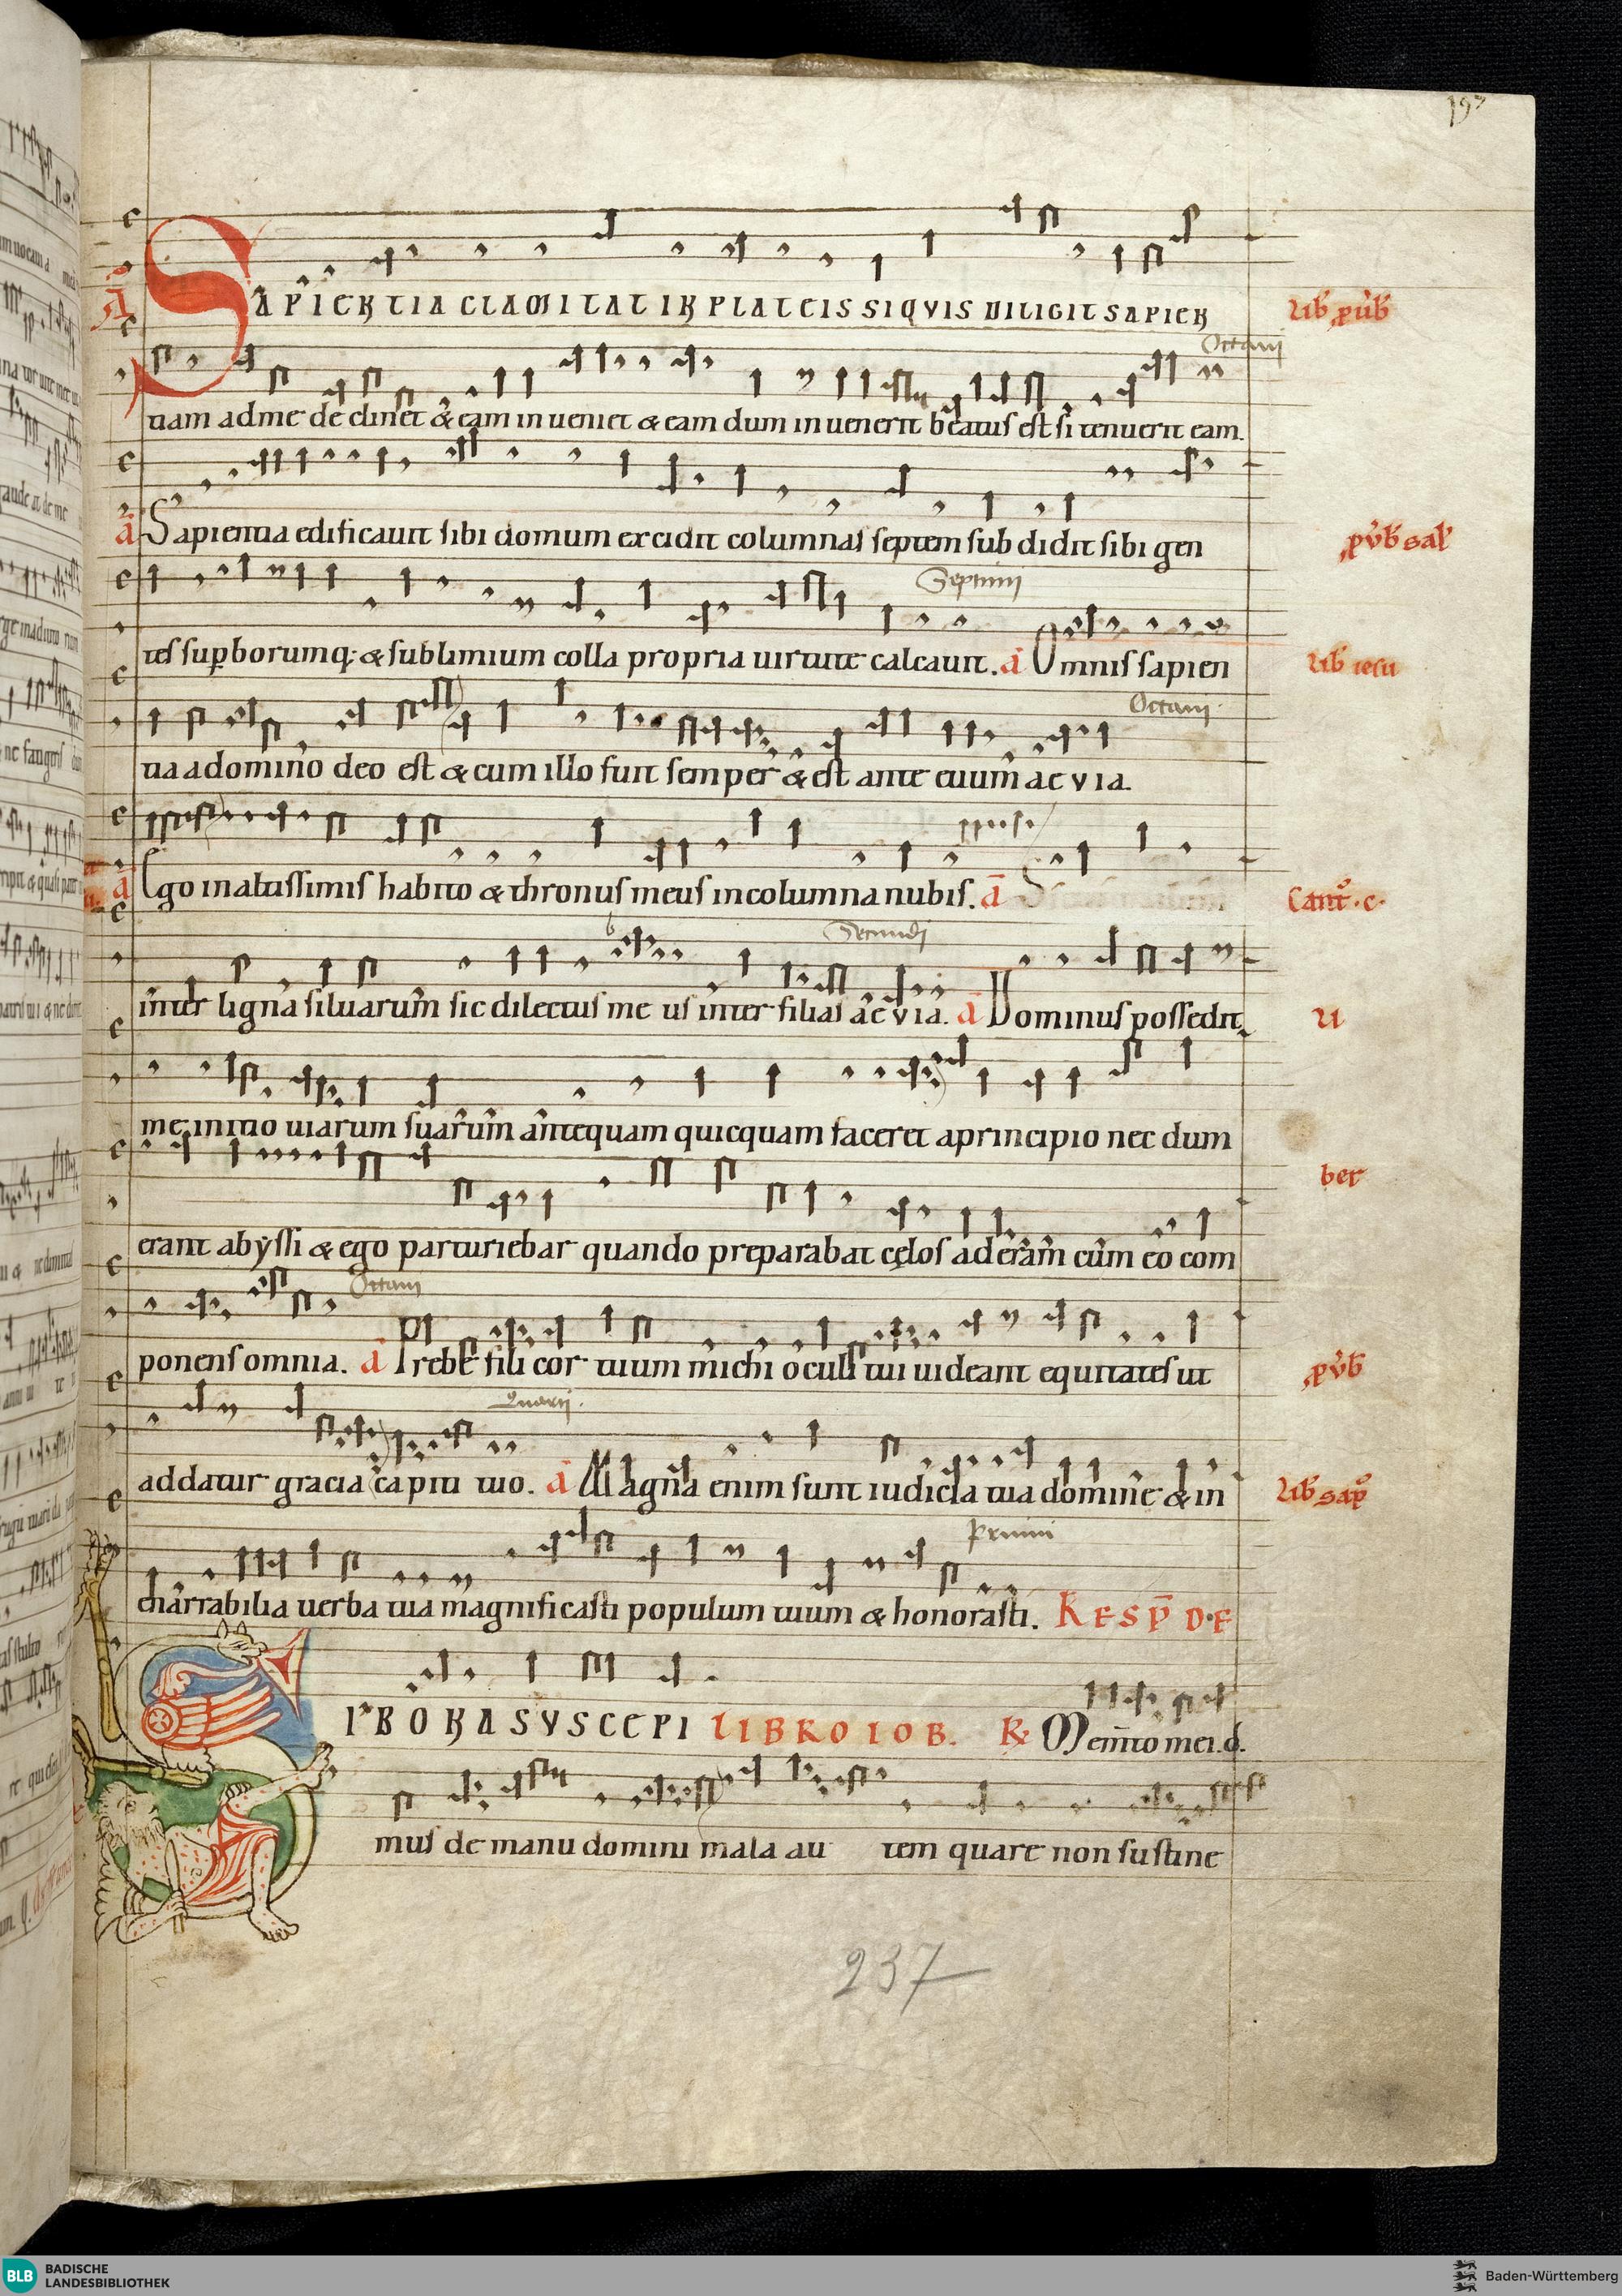 197
A SAPIENTIA CLAMITAT IN PLATEIS SI QVIS DILIGIT SAPIEN
Lib pub
Octaui
tiam ad me declinet & eam inueniet & eam dum inuenerit beatus est si tenuerit eam.
a Sapientia edificauit sibi domum excidit columnas septem subdidit sibi gen
pub sal
Septimi
tes supborumq; & sublimium colla propria uirtute calcauit. a Omnis sapien
Lib iesu
Octaui
tia a domino deo est & cum illo fuit semper & est ante euum aevia.
a Ego in altissimis habito & thronus meus in columna nubis. a
Cant. c.
Secundi
inter ligna siluarum sic dilectus meus inter filias aevia. a Dominus possedit
me initio uiarum suarum antequam quicquam faceret a principio nec dum
erant abyssi & ego parturiebar quando preparabat celos aderam cum eo com
ber
Octaui
ponens omnia. a Prebe fili cor tuum michi oculi tui uideant equitates ut
pub
Quarti
addatur gracia capiti tuo. a Magna enim sunt iudicia tua domine & in
Lib sap
Primi
enarrabilia uerba tua magnificasti populum tuum & honorasti. RESP DE
SI BONA SVSCEPI LIBRO IOB. R Memto mei. d.
mus de manu domini mala autem quare non sustine
237
BLB BADISCHE LANDESBIBLIOTHEK
Baden-Württemberg